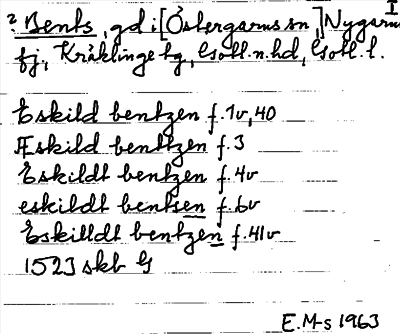 I
? Bents, gd i [Östergarns sn,] Nygarns
fj., Kräklinge tg, Gotl. n. hd, Gotl. l.
Eskild bentzen f. 1v, 40
Æskild benttzen f. 3
Eskildt bentzen f. 4v
eskildt bentsen f. 6v
Eskilldt bentzen f. 41v
1523 skb G
E.M-s 1963